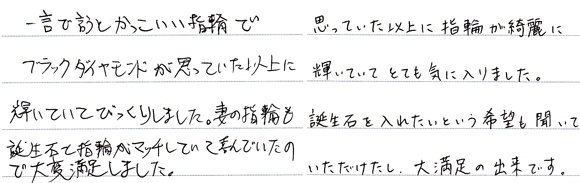 一言で言うとかっこいい指輪で
ブラックダイヤモンドが思っていた以上に
輝いていてびっくりしました。妻の指輪も
誕生石と指輪がマッチしていて喜んでいたの
で大変満足しました。
思っていた以上に指輪が綺麗に
輝いていてとても気に入りました。
誕生石を入れたいという希望も聞いて
いただけたし、大満足の出来です。